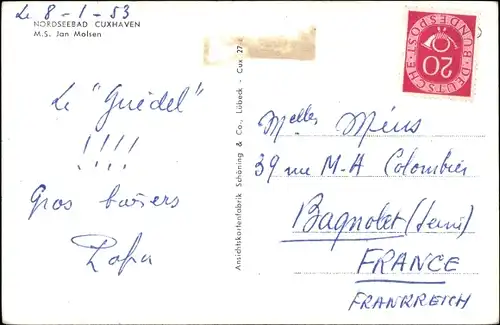 Le 8-1-53
NORDSEEBAD CUXHAVEN
M.S. Jan Molsen
Le "Guédel"
!!!!
Gros baisers
Papa
Ansichtskartenfabrik Schöning & Co., Lübeck - Cux 27
DEUTSCHE BUNDESPOST
20
Melles Méus
39 rue M-A Colombier
Bagnolet (Seine)
FRANCE
FRANKREICH